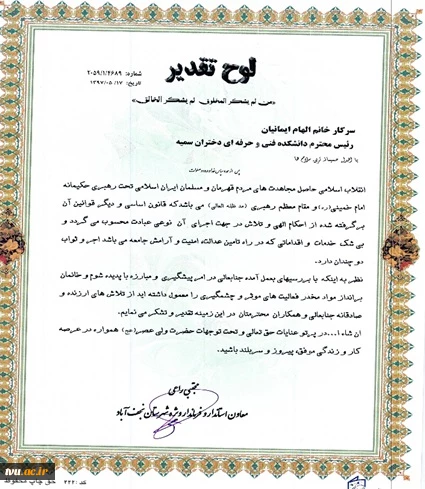 لوح تقدیر
شماره: ۲۰۵۹/۱/۴۶۸۹
تاریخ: ۱۳۹۷/۰۵/۱۷
«من لم یشکر المخلوق لم یشکر الخالق»
سرکار خانم الهام ایمانیان
رئیس محترم دانشکده فنی و حرفه ای دختران سمیه
با
پس از حمد خدا و درود و صلوات
انقلاب اسلامی حاصل مجاهدت های مردم قهرمان و مسلمان ایران اسلامی تحت رهبری حکیمانه
امام خمینی(ره) و مقام معظم رهبری (مد ظله تعالی) می باشدکه قانون اساسی و دیگر قوانین آن
برگرفته شده از احکام الهی و تلاش در جهت اجرای آن نوعی عبادت محسوب می گردد و
بی شک خدمات و اقداماتی که در راه تامین عدالت، امنیت و آرامش جامعه می باشد اجر و ثواب
دو چندان دارد.
نظر به اینکه با بررسیهای بعمل آمده جنابعالی در امر پیشگیری و مبارزه با پدیده شوم و خانمان
برانداز مواد مخدر فعالیت های موثر و چشمگیری را معمول داشته اید از تلاش های ارزنده و
صادقانه جنابعالی و همکاران محترمتان در این زمینه تقدیر و تشکر می نمایم.
ان شاء ا... در پرتو عنایات حق تعالی و تحت توجهات حضرت ولی عصر(عج) همواره در عرصه
کار و زندگی موفق، پیروز و سربلند باشید.
مجتبی راعی
معاون استاندار و فرماندار ویژه شهرستان نجف آباد
tvu.ac.ir
حق چاپ محفوظ
کد: ۲۲۲